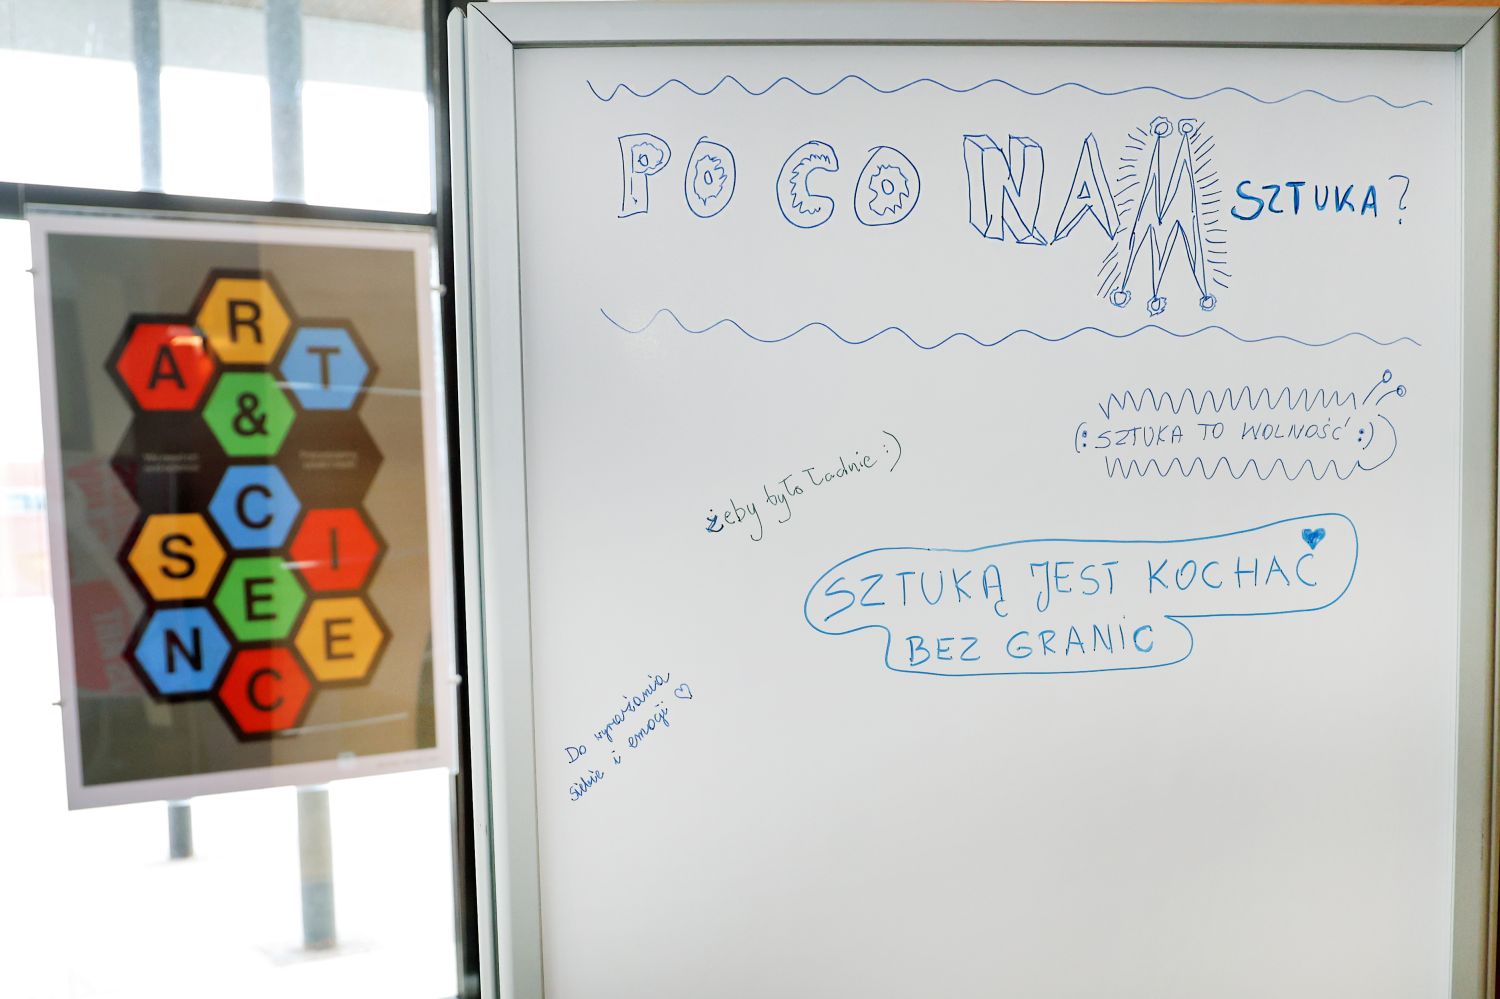 ART
&
SCIENCE
PO CO NAM SZTUKA?
(: SZTUKA TO WOLNOŚĆ :)
żeby było ładnie :)
SZTUKĄ JEST KOCHAĆ
BEZ GRANIC
Do wyrażania
siebie i emocji ♡